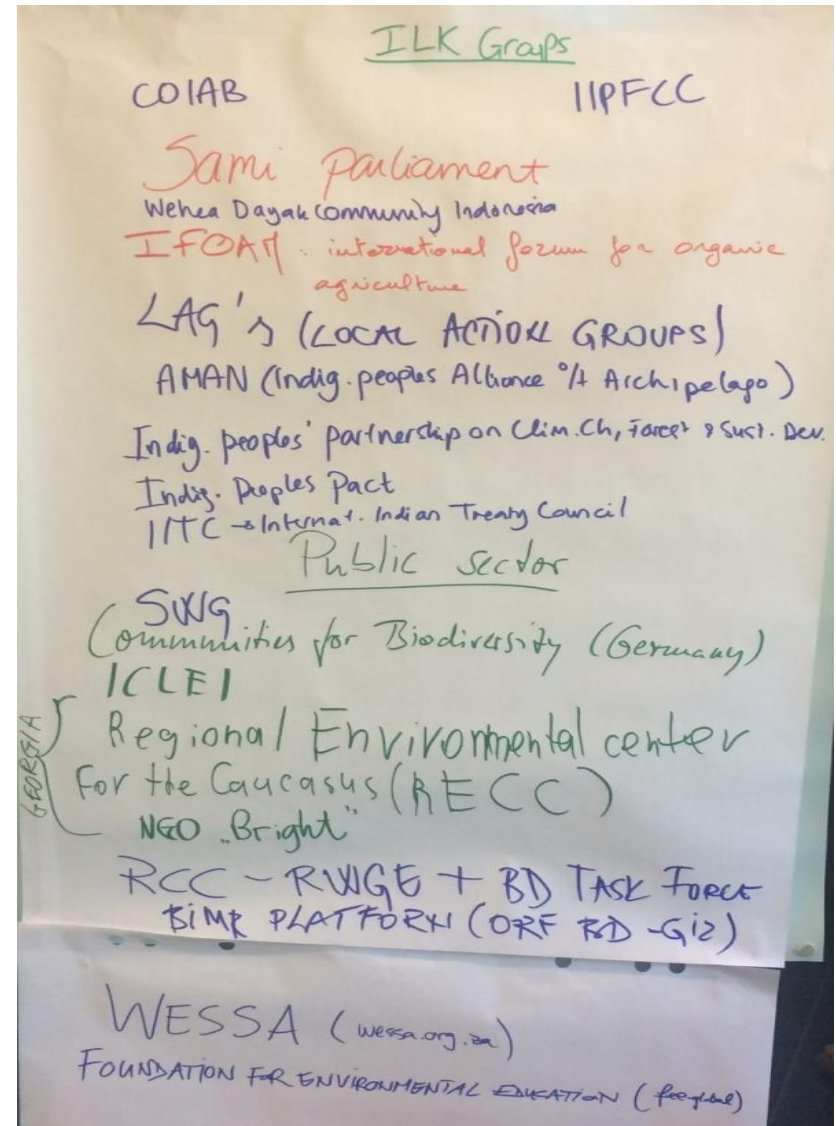 ILK Groups
COIAB IIPFCC
Sami Parliament
Wehea Dayak Community Indonesia
IFOAM : international forum for organic
agriculture
LAG's (LOCAL ACTION GROUPS)
AMAN (Indig. peoples Alliance o/t Archipelago)
Indig. peoples' partnership on Clim. Ch, Forest & Sust. Dev.
Indig. Peoples Pact
IITC → Internat. Indian Treaty Council
Public sector
SWG
Communities for Biodiversity (Germany)
ICLEI
GEORGIA
Regional Environmental center
For the Caucasus (RECC)
NGO „Bright"
RCC - RWGE + BD TASK FORCE
BIMR PLATFORM (ORF BD - GIZ)
WESSA (wessa.org.za)
FOUNDATION FOR ENVIRONMENTAL EDUCATION (